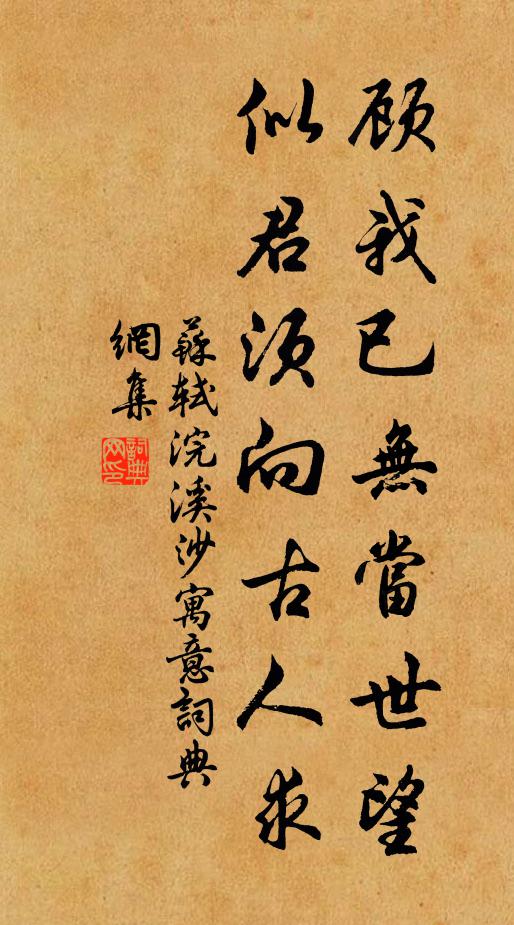 顾我已無當世望
似君須向古人求
蘇軾浣溪沙寓意詞典
網集
詞典
网印